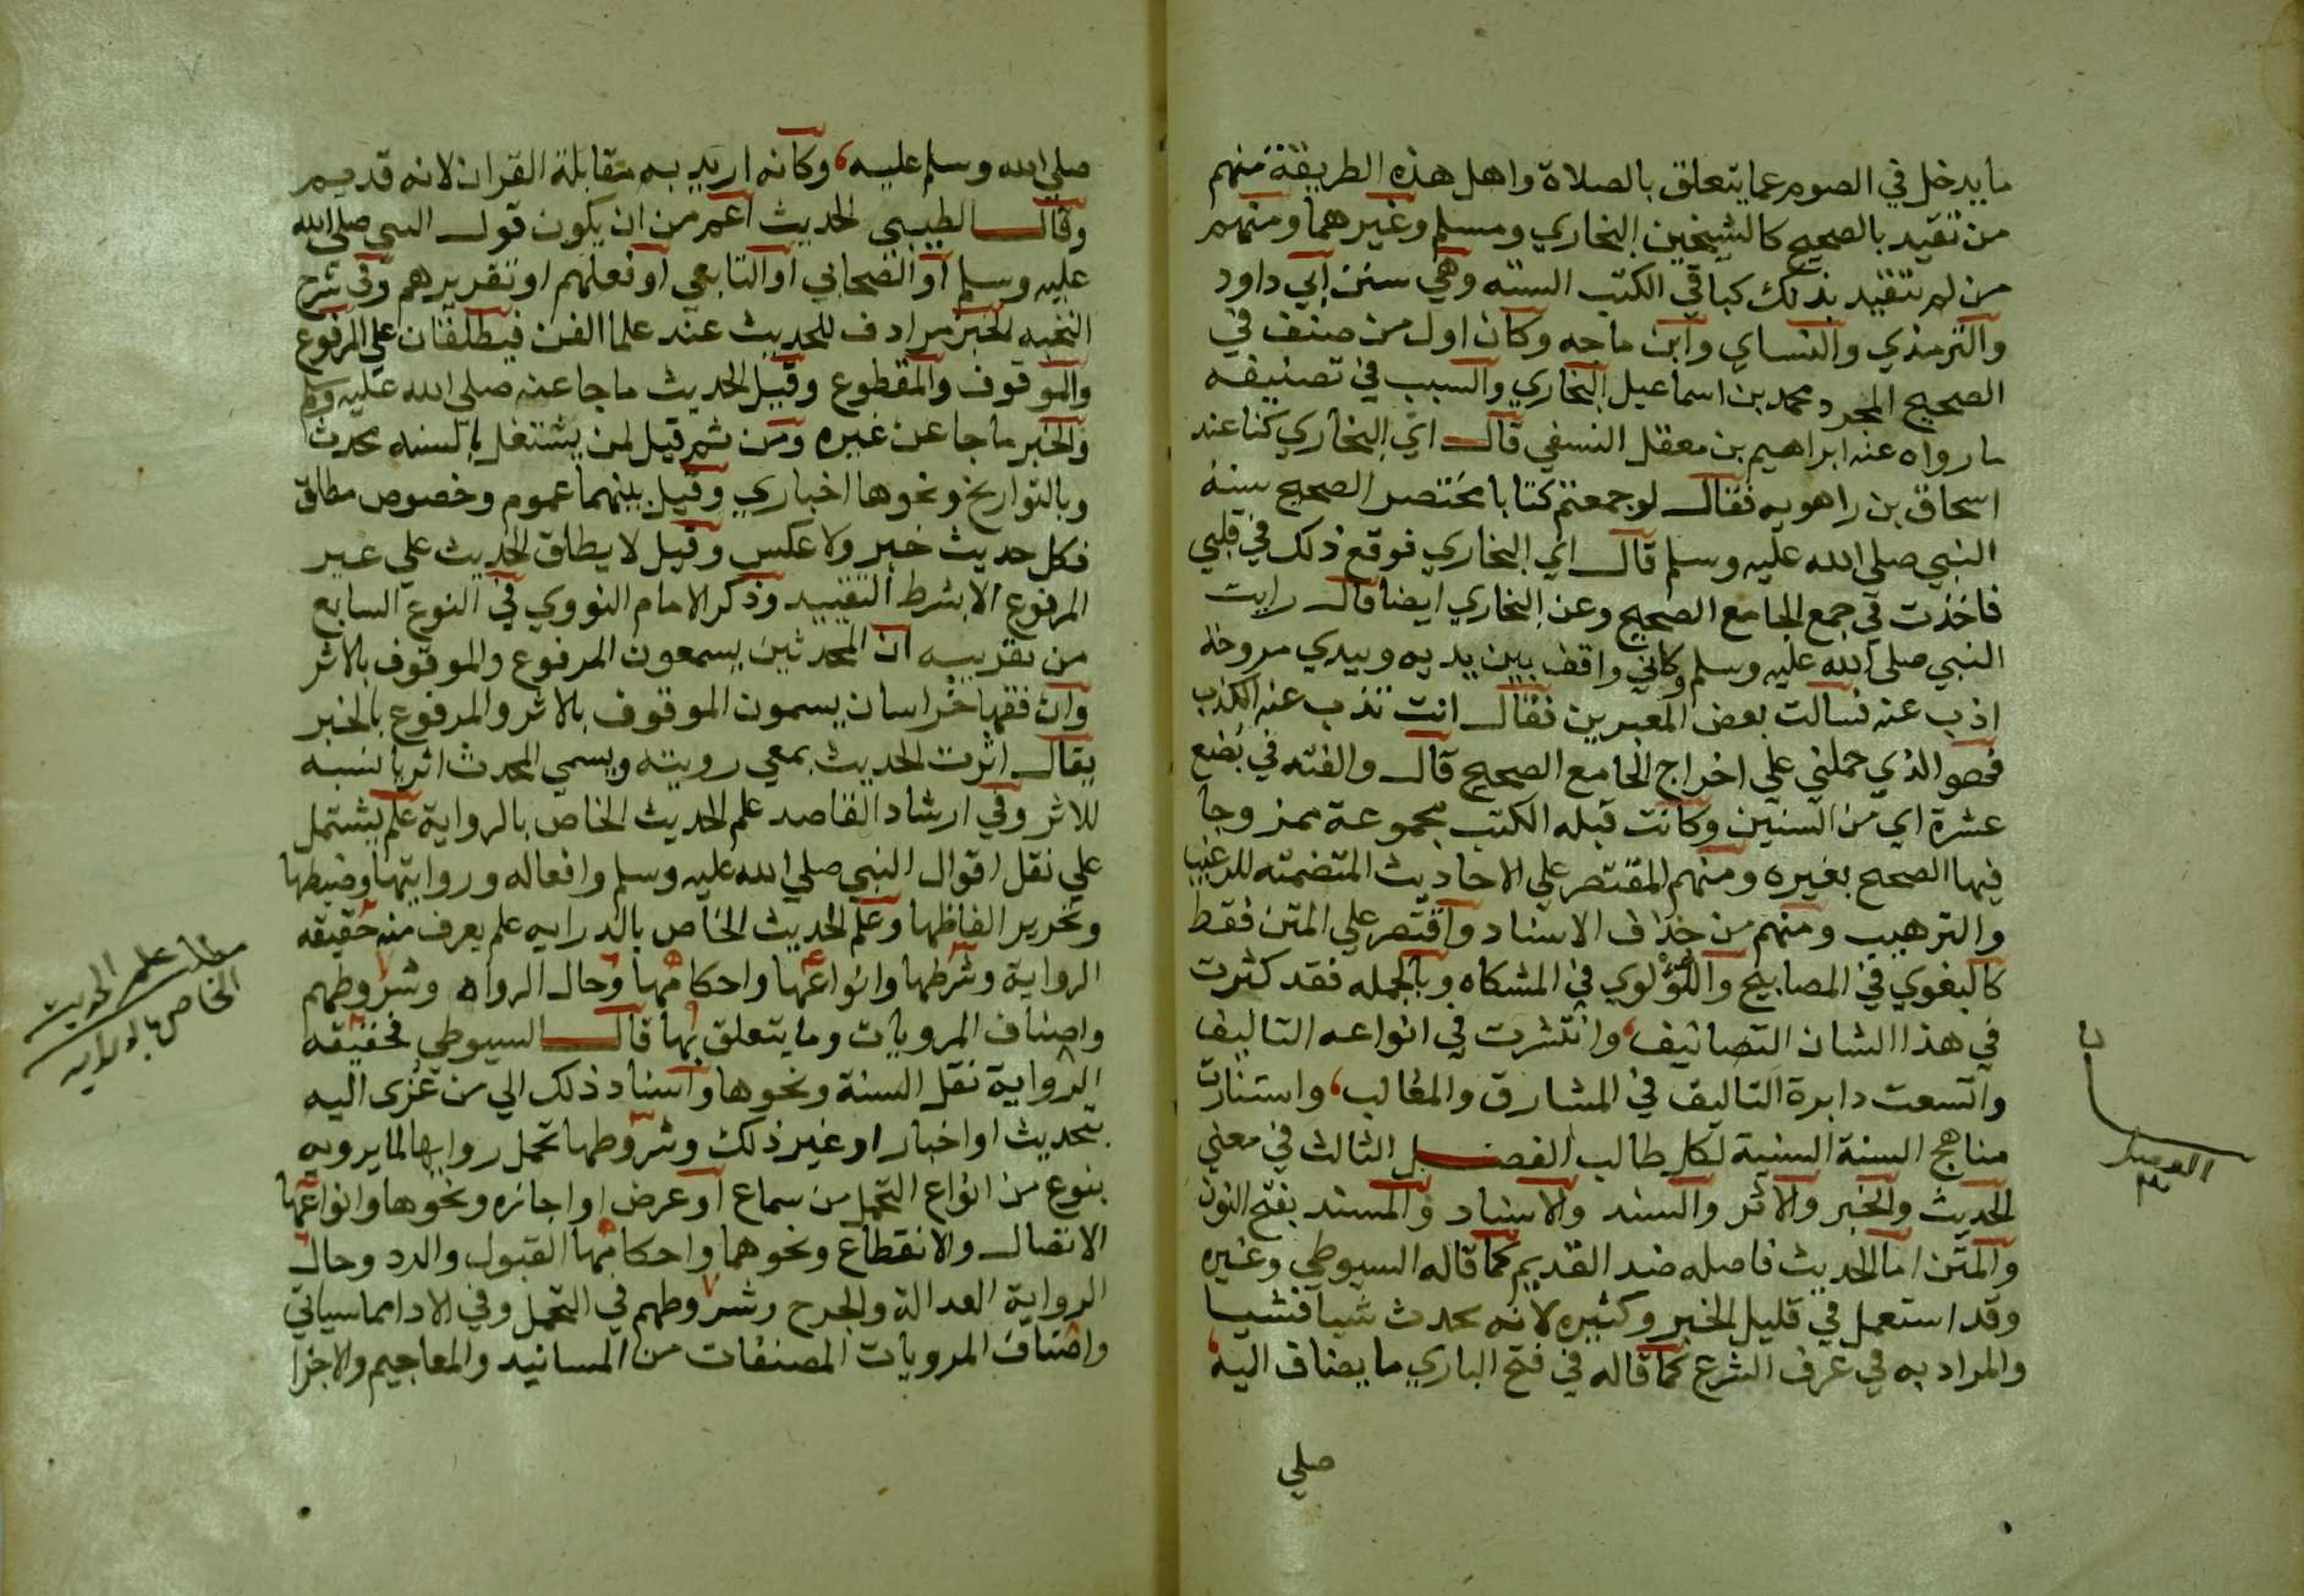 ما يدخل في الصوم عما يتعلق بالصلاة واهل هذه الطريقة منهم
من تقيد بالصحيح كالشيخين البخاري ومسلم وغيرهما ومنهم
من لم يتقيد بذلك كباقي الكتب الستة وهي سنن ابي داود
والترمذي والنساي وابن ماجه وكان اول من صنف في
الصحيح المجرد محمد بن اسماعيل البخاري والسبب في تصنيفه
ما رواه عنه ابراهيم بن معقل النسفي قال اي البخاري كنا عند
اسحاق بن راهويه فقال لو جمعتم كتابا مختصر الصحيح سنة
النبي صلي الله عليه وسلم قال اي البخاري فوقع ذلك في قلبي
فاخذت في جمع الجامع الصحيح وعن البخاري ايضا قال رايت
النبي صلي الله عليه وسلم وكاني واقف بين يديه وبيدي مروحة
اذب عنه فسالت بعض المعبرين فقال انت تذب عنه الكذب
فهو الذي حملني علي اخراج الجامع الصحيح قال والفته في بضع
عشرة اي من السنين وكانت قبله الكتب مجموعة ممزوجا
فيها الصحيح بغيره ومنهم المقتصر علي الاحاديث المتضمنه للترغيب
والترهيب ومنهم من حذف الاسناد واقتصر علي المتن فقط
كالبغوي في المصابيح واللؤلوي في المشكاه وبالجمله فقد كثرت
في هذا الشان التصانيف، وانتشرت في انواعه التاليف
واتسعت دايرة التاليف في المشارق والمغارب، واستنارت
مناهج السنة السنية لكل طالب الفصل الثالث في معني
الحديث والخبر والاثر والسند والاسناد والمسند بفتح النون
والمتن اما الحديث فاصله ضد القديم كما قاله السيوطي وغيره
وقد استعمل في قليل الخبر وكثيره لانه يحدث شيا فشيا
والمراد به في عرف الشرع كما قاله في فتح الباري ما يضاف اليه
صلي
صلي الله وسلم عليه، وكانه اريد به مقابلة القران لانه قديم
وقال الطيبي الحديث اعم من ان يكون قول النبي صلي الله
عليه وسلم او الصحابي او التابعي او فعلهم او تقريرهم وفي شرح
النخبه الخبر مرادف للحديث عند علما الفن فيطلقان علي المرفوع
والموقوف والمقطوع وقيل الحديث ما جا عنه صلي الله عليه وسلم
والخبر ما جا عن غيره ومن ثم قيل لمن يشتغل بالسنه محدث
وبالتواريخ ونحوها اخباري وقيل بينهما عموم وخصوص مطلق
فكل حديث خبر ولا عكس وقيل لا يطلق الحديث علي غير
المرفوع الا بشرط التقييد وذكر الامام النووي في النوع السابع
من تقريبه ان المحدثين يسمعون المرفوع والموقوف بالاثر
وان فقها خراسان يسمون الموقوف بالاثر والمرفوع بالخبر
يقال اثرت الحديث بمعي رويته ويسمي المحدث اثريا نسبه
للاثر وفي ارشاد القاصد علم الحديث الخاص بالرواية علم يشتمل
علي نقل اقوال النبي صلي الله عليه وسلم وافعاله وروايتها وضبطها
وتحرير الفاظها وعلم الحديث الخاص بالدرايه علم يعرف منه حقيقه
الرواية وشرطها وانواعها واحكامها وحال الرواه وشروطهم
واصناف المرويات وما يتعلق بها قال السيوطي فحقيقه
الرواية نقل السنة ونحوها واسناد ذلك الي من عزى اليه
بتحديث او اخبار او غير ذلك وشروطها تحمل راويها لما يرويه
بنوع من انواع التحمل من سماع او عرض او اجازه ونحوها وانواعها
الاتصال والانقطاع ونحوهما واحكامها القبول والرد وحال
الرواية العدالة والجرح وشروطهم في التحمل وفي الادا مما سياتي
واصناف المرويات المصنفات من المسانيد والمعاجيم والاجزا
مطلب علم الحديث
الخاص بالدرايه